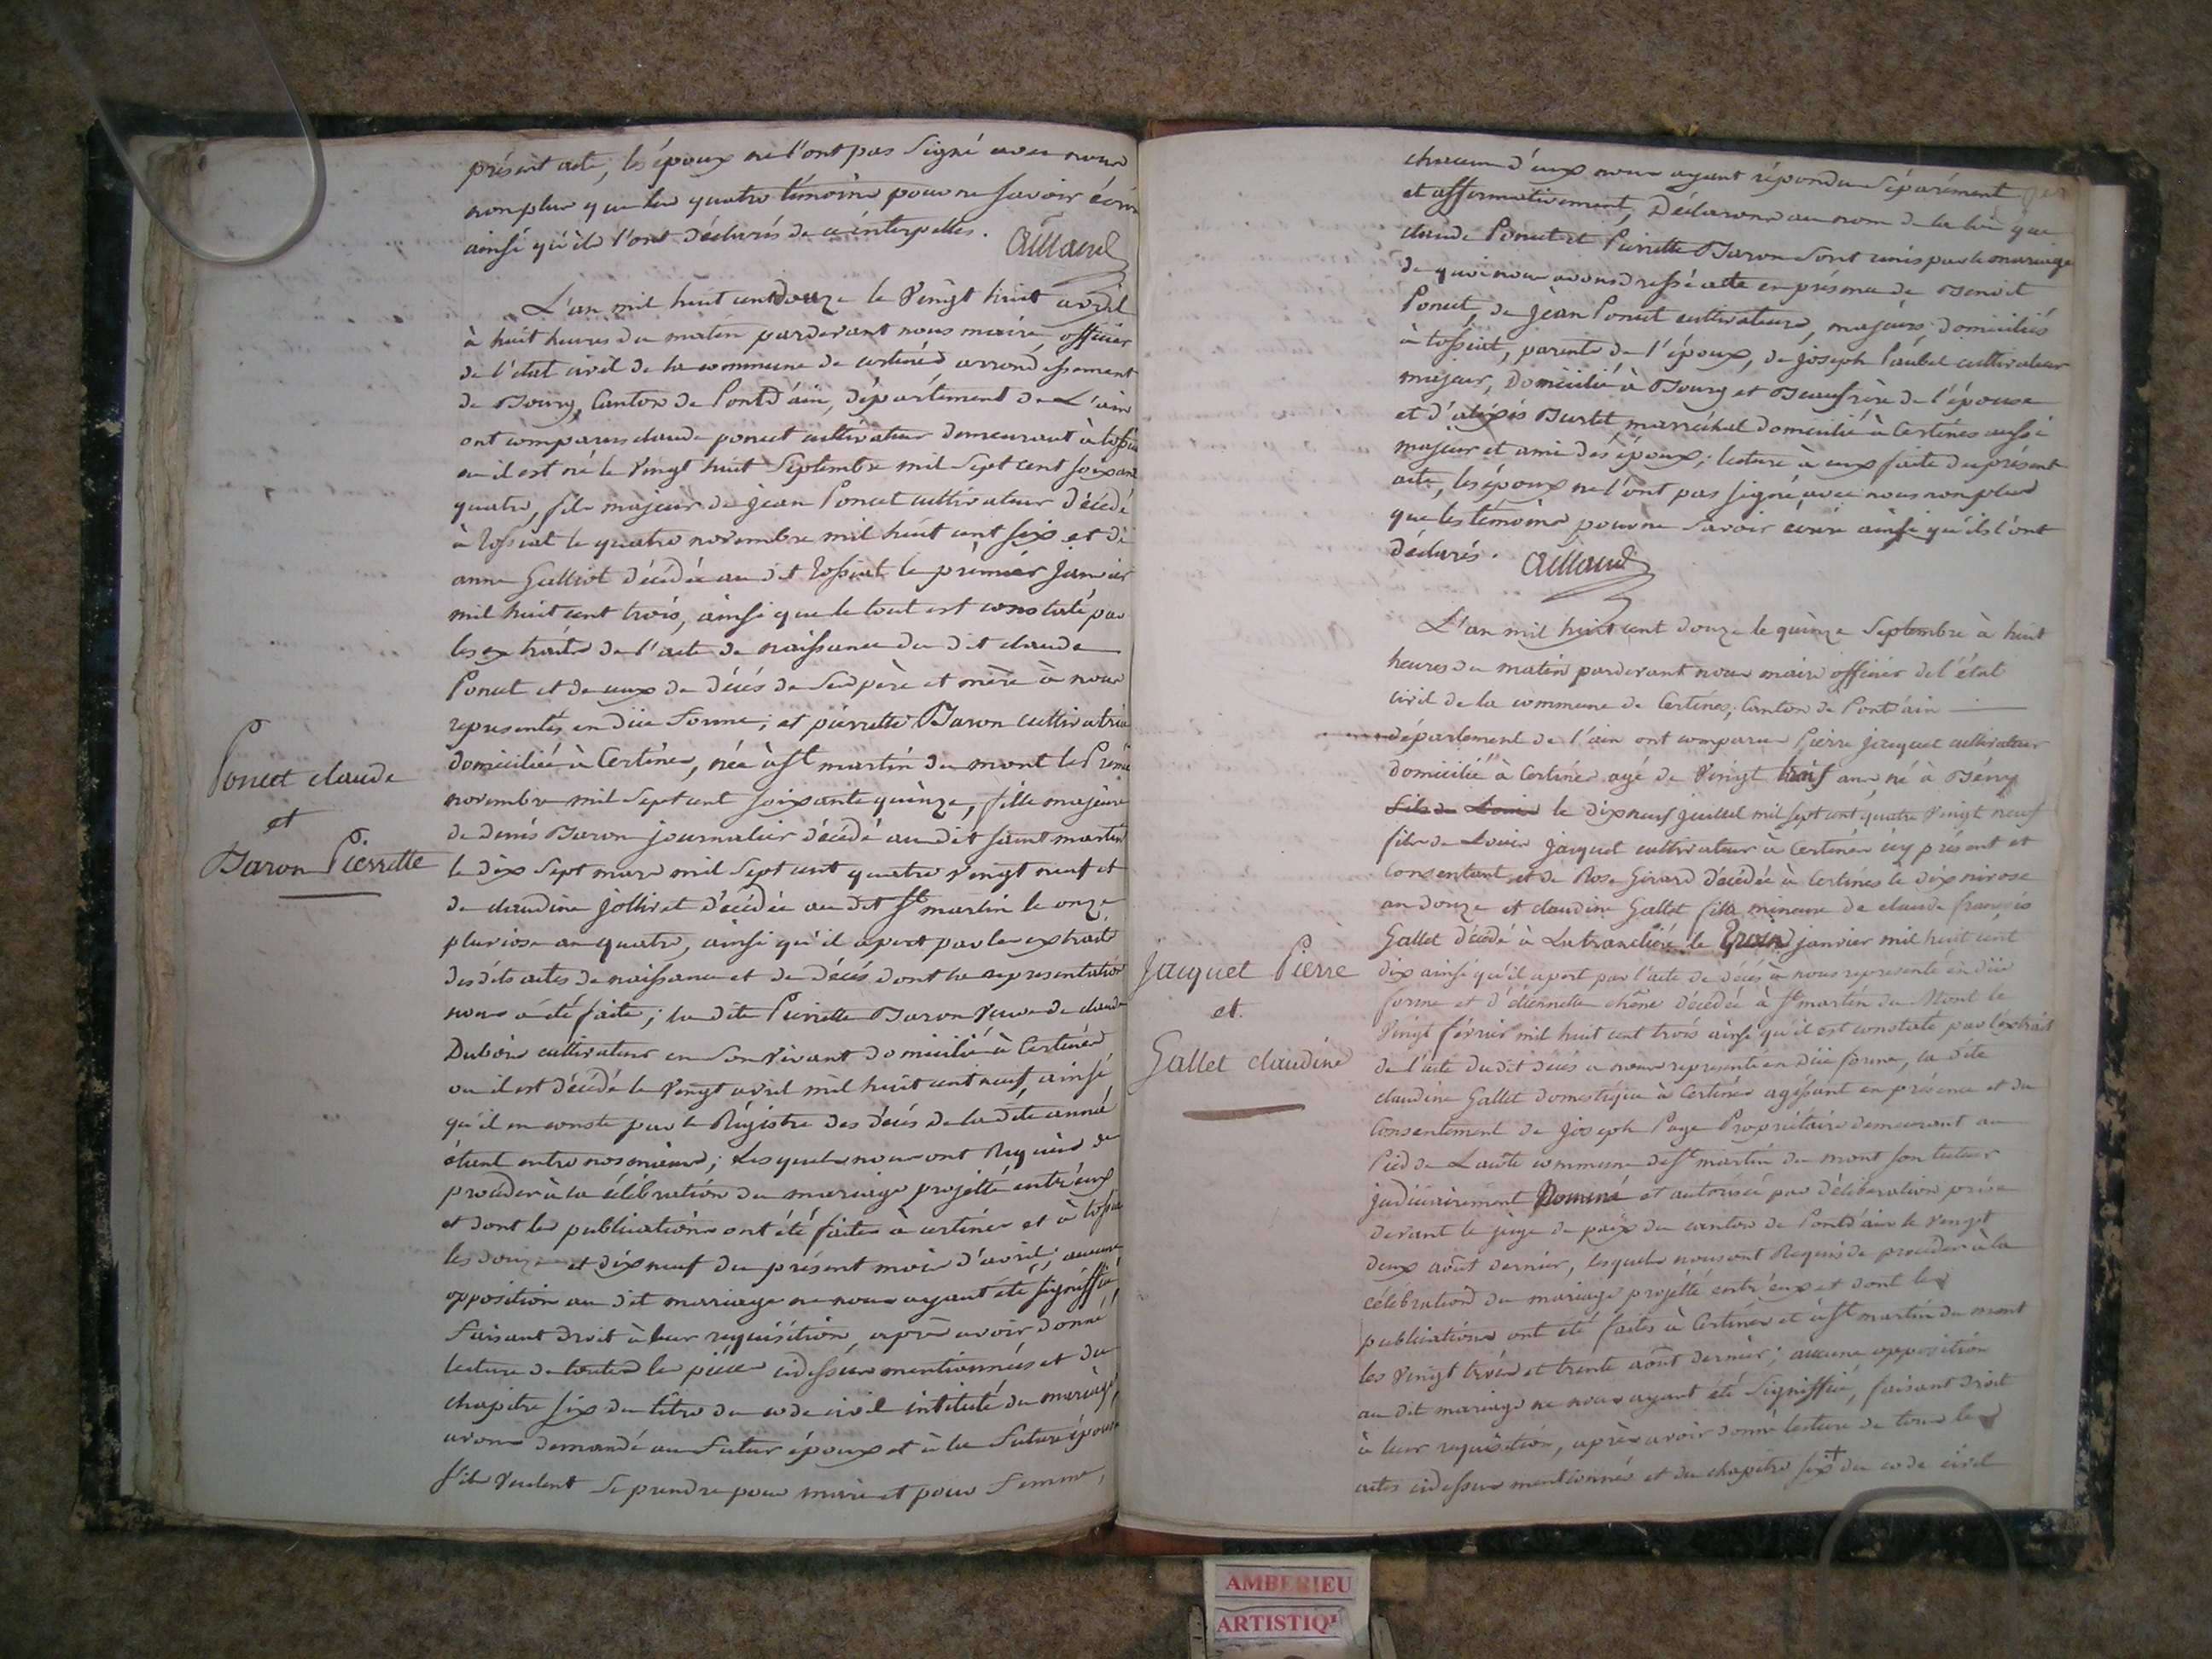 présent acte, les époux ne l'ont pas signé avec nous
non plus que les quatre témoins pour ne savoir écrire
ainsi qu'ils l'ont déclarés de ce interpellés.
L'an mil huit cent douze le vingt huit avril
à huit heures du matin pardevant nous maire, officier
de l'état civil de la commune de certines arrondissement
de Bourg, Canton de Pontd'ain, département de L'ain
ont comparus claude poncet cultivateur demeurant à tossiat
ou il est né le vingt huit Septembre mil Sept cent soixante
quatre, fils majeur de jean Poncet cultivateur décédé
à tossiat le quatre novembre mil huit cent six et de
anne Galliot décédée au dit tossiat le prémiér janvier
mil huit cent trois, ainsi que le tout est constaté par
les extraits de l'acte de naissance du dit claude
Poncet et de ceux de décés de Ses père et mère à nous
representés en dûe forme; et piérrette Baron cultivatrice
domiciliée à Certines, née à st martin du mont le Prémier
novembre mil Sept cent soixante quinze, fille majeure
de denis Baron journalier décédé au dit saint martin
le dix Sept mars mil Sept cent quatre vingt neuf et
de claudine jollivet décédée au dit st martin le onze
pluviose an quatre, ainsi qu'il apert par les extraits
desdits actes de naissance et de décés dont la representation
nous a été faite; la dite Pierrette Baron veuve de claude
Dubois cultivateur en Son vivant domicilié à Certines
ou il est décédé le vingt avril mil huit cent neuf, ainsi
qu'il en conste par le Régistre des décés de la dite année
étant entre nos mains; Lesquels nous ont Requis de
procéder à la célébration du mariage projetté entr'eux
et dont les publications ont été faites à certines et à tossiat
les douze et dix neuf du présent mois d'avril; aucune
opposition au dit mariage ne nous ayant été signiffiée,
faisant droit à leur requisition, après avoir donné
lecture de toutes les pièces cidessus mentionnées et du
chapitre six du titre du code civil intitulé du mariage,
avons demandé au futur époux et à la future épouse
s'ils veulent Se prendre pour mari et pour femme,
Poncet claude
et
Baron Pierrette
chacun d'eux nous ayant répondu Séparément
et affirmativement, Déclarons au nom de la loi que
claude Poncet et Pierrette Baron Sont unis par le mariage
de quoi nous avons dressé acte en présence de Benoit
Poncet, de jean Poncet cultivateurs, majeurs, domiciliés
à tossiat, parents de l'époux, de joseph Paubel cultivateur
majeur, domicilié à Bourg et Beaufrère de l'épouse
et d'aléxis Burtet marréchal domicilié à Certines aussi
majeur et ami des époux; lecture à eux faite du présent
acte, les époux ne l'ont pas signé avec nous non plus
que les témoins pour ne Savoir écrire ainsi qu'ils l'ont
déclarés.
L'an mil huit cent douze le quinze Septembre à huit
heures du matin pardevant nous maire officier de l'état
civil de la commune de Certines, Canton de Pontd'ain
département de l'ain ont comparu Pierre jacquet cultivateur
domicilié à Certines agé de vingt trois ans, né à Bény
fils de Louis le dix neuf juillet mil sept cent quatre vingt neuf
fils de Louis jacquet cultivateur à Certines icy présent et
Consentant, et de Rose Girard décédée à Certines le dix nivose
an douze et claudine Gallet fille mineure de claude françois
Gallet décédé à Latranclière le janvier mil huit cent
dix ainsi qu'il apert par l'acte de décés à nous representé en dûe
forme et d'étiennette chêne décédée à St martin du Mont le
vingt février mil huit cent trois ainsi qu'il est constaté par l'extrait
de l'acte du dit décés à nous representé en dûe forme, la dite
claudine Gallet domestique à Certines agissant en présence et du
Consentement de joseph Page Propriétaire demeurant au
Pied de Lacôte commune de st martin du mont son tuteur
judiciairement Nommé et autorisé par déliberation prise
devant le juge de paix du canton de Pontd'ain le vingt
deux août dernier, lesquels nous ont Requis de procéder à la
célébration du mariage projetté entr'eux et dont les
publications ont été faites à Certines et à st martin du mont
les vingt trois et trente août dernier; aucune opposition
au dit mariage ne nous ayant été Signiffiée, faisant droit
à leur requisition, après avoir donné lecture de tous les
actes cidessus mentionnés et du chapitre six + du code civil
Jacquet Pierre
et
Gallet claudine
AMBERIEU
ARTISTIQ